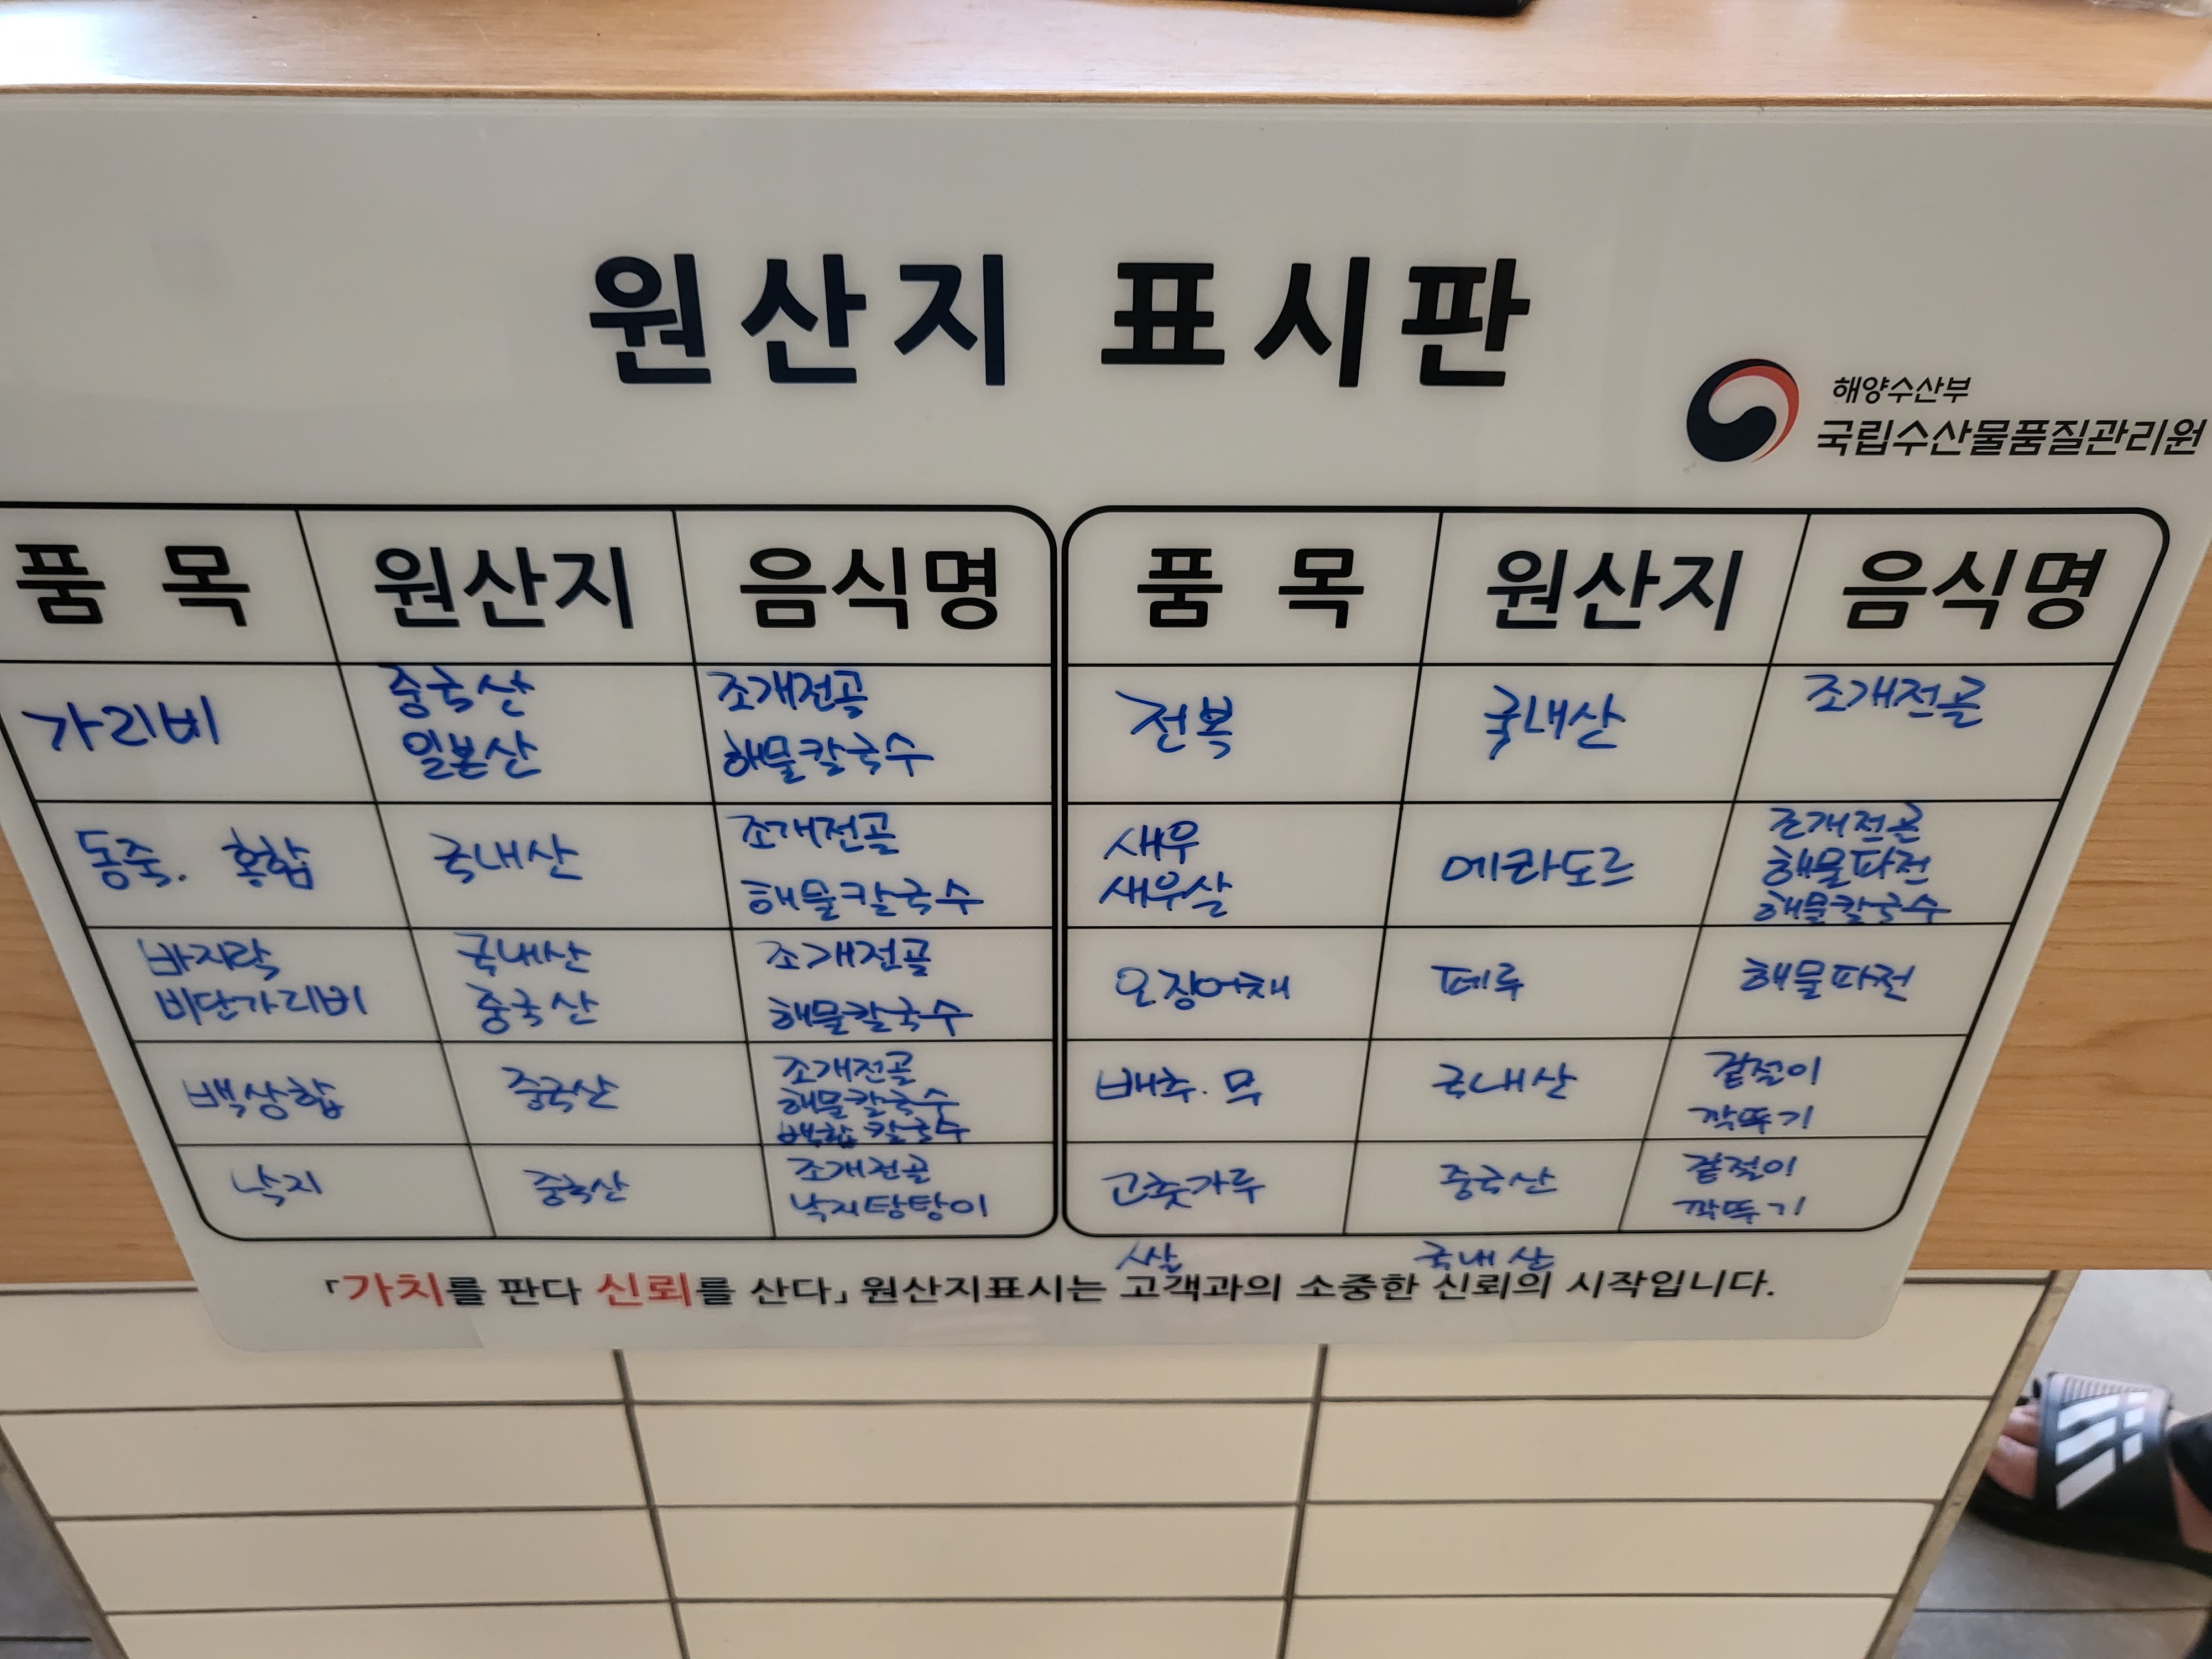 원산지 표시판
해양수산부
국립수산물품질관리원
품 목 원산지 음식명
가리비 중국산 일본산 조개전골 해물칼국수
동죽. 홍합 국내산 조개전골 해물칼국수
바지락 비단가리비 국내산 중국산 조개전골 해물칼국수
백상합 중국산 조개전골 해물칼국수 백합칼국수
낙지 중국산 조개전골 낙지탕탕이
품 목 원산지 음식명
전복 국내산 조개전골
새우 새우살 에콰도르 조개전골 해물파전 해물칼국수
오징어채 페루 해물파전
배추. 무 국내산 겉절이 깍뚜기
고춧가루 중국산 겉절이 깍뚜기
쌀 국내산
「가치를 판다 신뢰를 산다」 원산지표시는 고객과의 소중한 신뢰의 시작입니다.